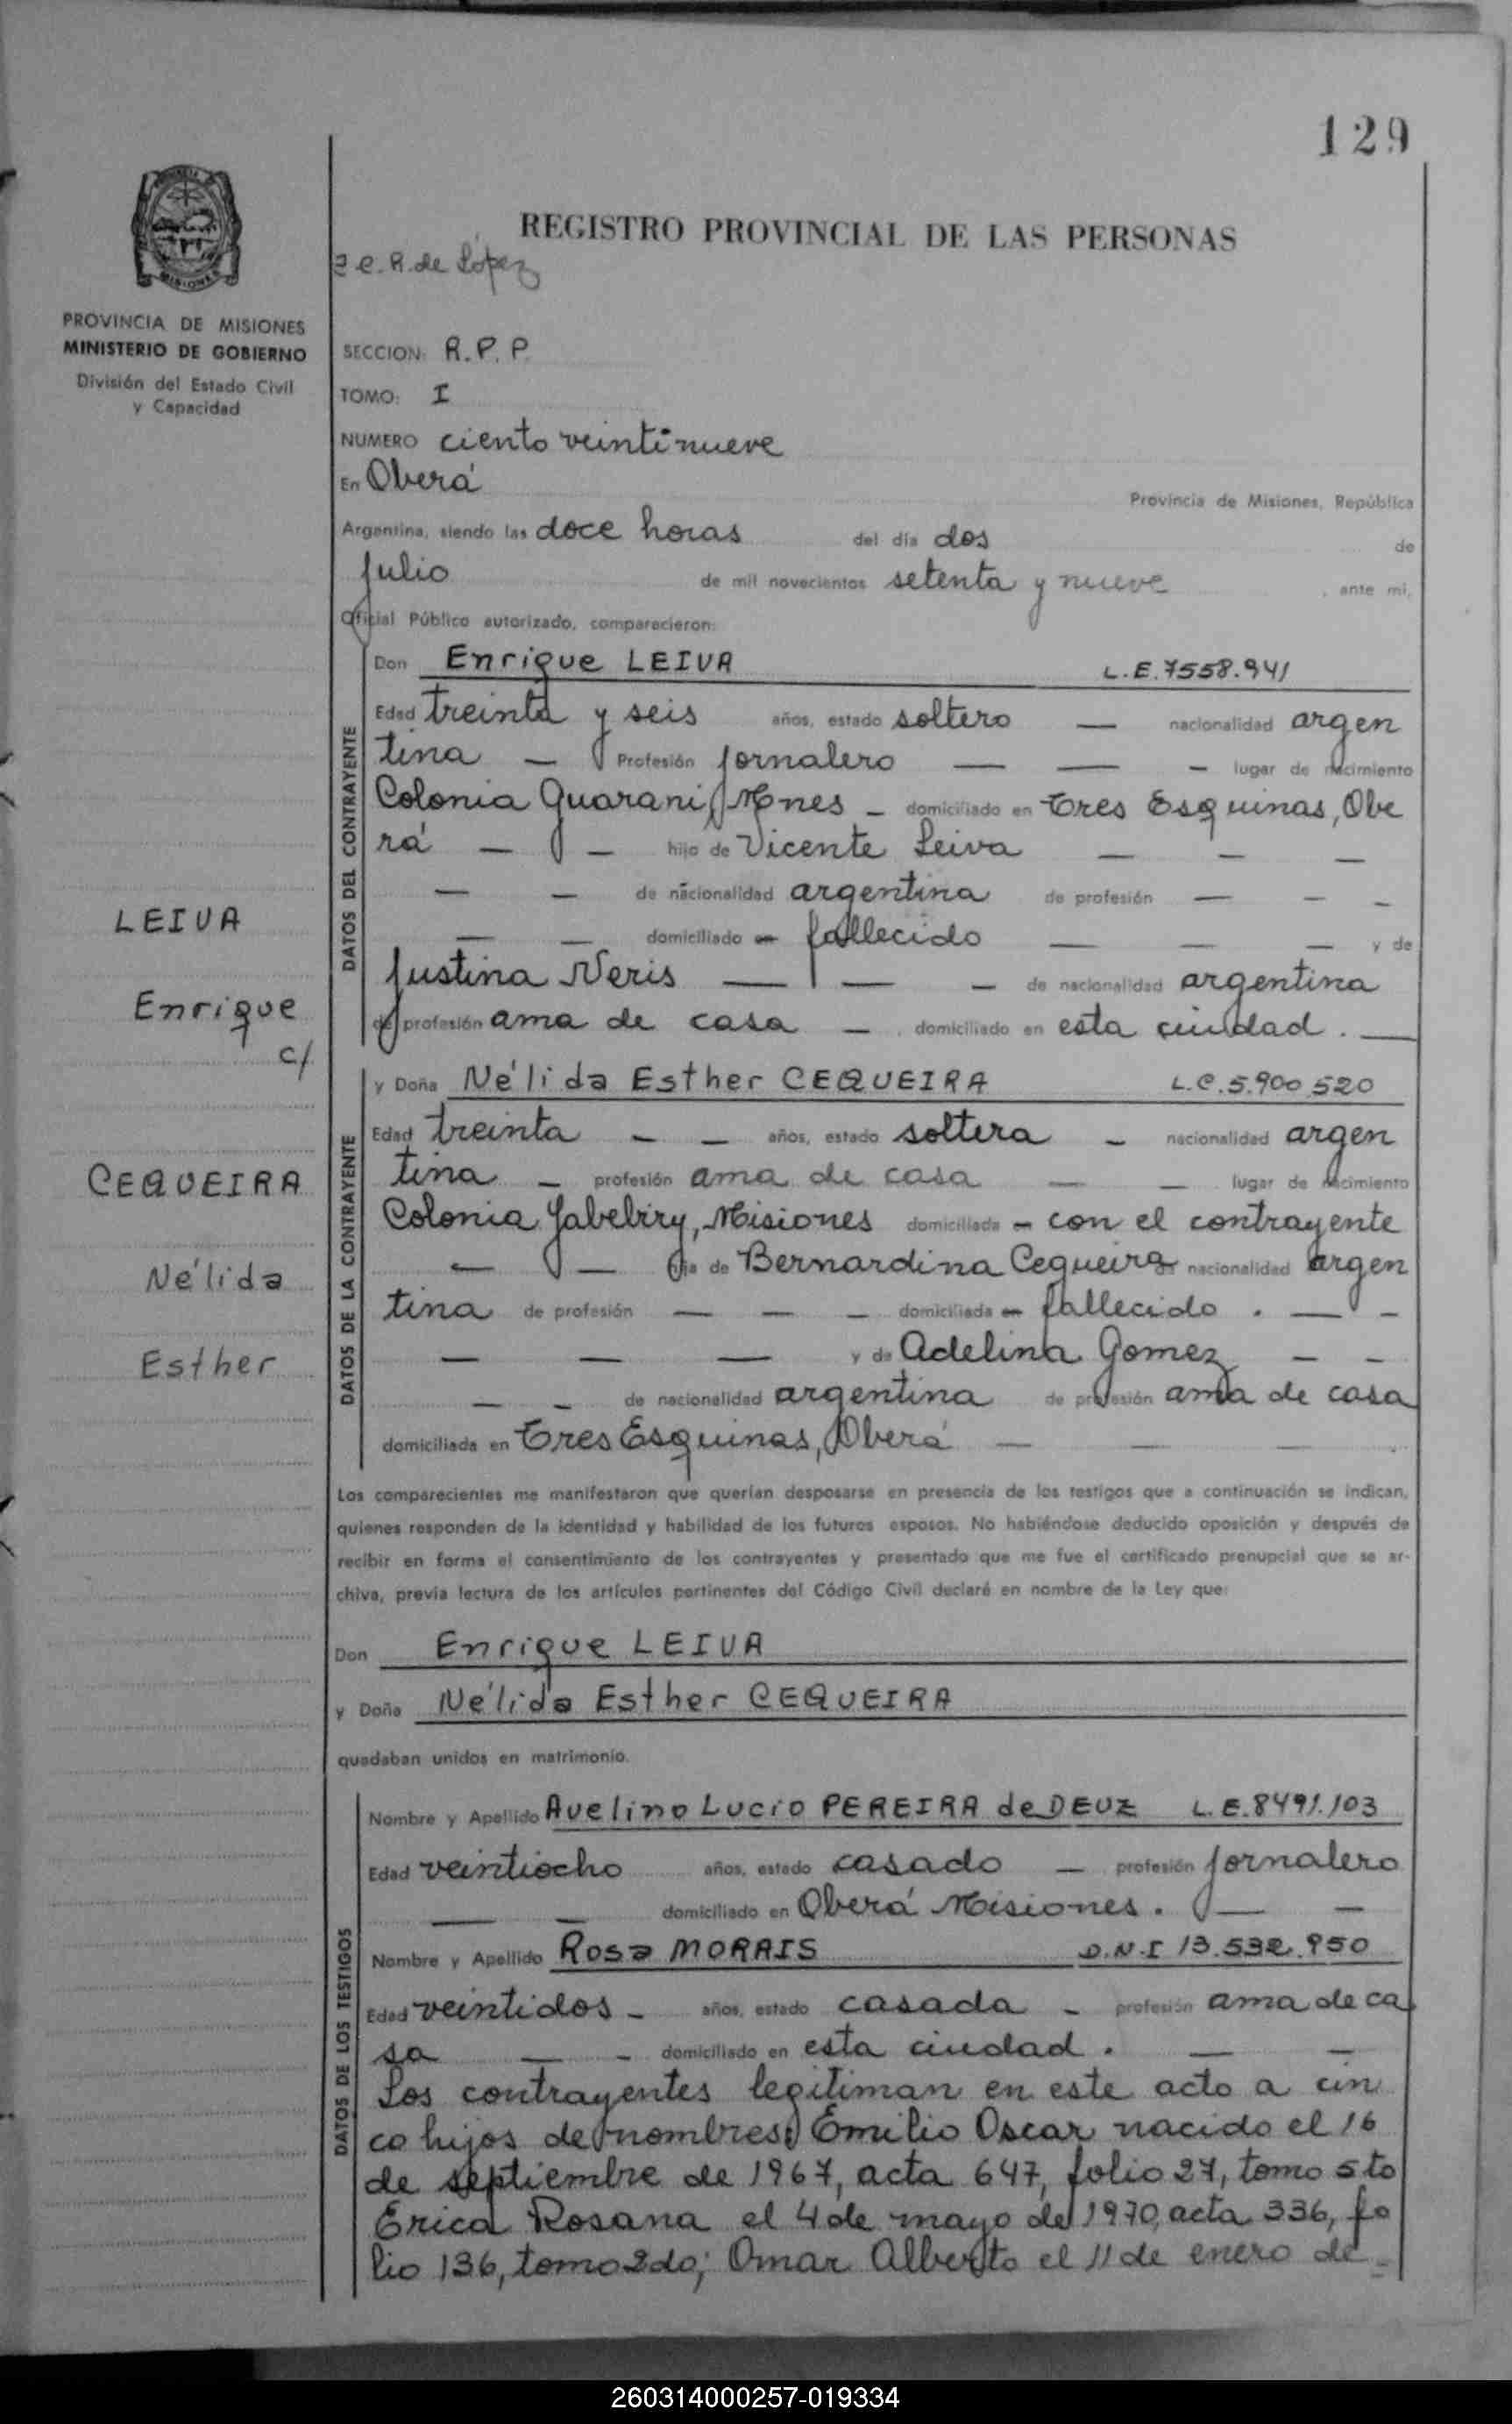 129
REGISTRO PROVINCIAL DE LAS PERSONAS
e. R. de López
PROVINCIA DE MISIONES
MINISTERIO DE GOBIERNO
División del Estado Civil
y Capacidad
SECCION: R.P.P.
TOMO: I
NUMERO ciento veintinueve
En Oberá
Provincia de Misiones, República
Argentina, siendo las doce horas del día dos de
Julio de mil novecientos setenta y nueve, ante mi,
Oficial Público autorizado, comparecieron:
DATOS DEL CONTRAYENTE
Don Enrique LEIVA L.E.7558.941
Edad treinta y seis años, estado soltero — nacionalidad argen
tina — Profesión Jornalero — — — lugar de nacimiento
Colonia Guaraní, Mnes – domiciliado en Tres Esquinas, Obe
rá — — hijo de Vicente Leiva — — —
— — de nacionalidad argentina de profesión — — —
— — domiciliado en fallecido — — — y de
Justina Neris — — — de nacionalidad argentina
de profesión ama de casa — domiciliado en esta ciudad. —
LEIVA
Enrique
c/
CEQUEIRA
Nélida
Esther
DATOS DE LA CONTRAYENTE
y Doña Nélida Esther CEQUEIRA L.C.5.900.520
Edad treinta — — años, estado soltera — nacionalidad argen
tina — profesión ama de casa — — lugar de nacimiento
Colonia Yabebiry, Misiones domiciliada – con el contrayente
— — hija de Bernardina Cequeira de nacionalidad argen
tina de profesión — — — domiciliada en fallecido . — –
— — — y de Adelina Gomez — –
— — de nacionalidad argentina de profesión ama de casa
domiciliada en Tres Esquinas, Oberá — — —
Los comparecientes me manifestaron que querían desposarse en presencia de los testigos que a continuación se indican,
quienes responden de la identidad y habilidad de los futuros esposos. No habiéndose deducido oposición y después de
recibir en forma el consentimiento de los contrayentes y presentado que me fue el certificado prenupcial que se ar-
chiva, previa lectura de los artículos pertinentes del Código Civil declaré en nombre de la Ley que:
Don Enrique LEIVA
y Doña Nélida Esther CEQUEIRA
quedaban unidos en matrimonio.
DATOS DE LOS TESTIGOS
Nombre y Apellido Avelino Lucio PEREIRA de DEUZ L.E.8491.103
Edad veintiocho años, estado casado — profesión Jornalero
— — domiciliado en Oberá Misiones. — —
Nombre y Apellido Rosa MORAIS D.N.I 13.532.950
Edad veintidos – años, estado casada – profesión ama de ca
sa — – domiciliado en esta ciudad. — —
Los contrayentes legitiman en este acto a cin
co hijos de nombres: Emilio Oscar nacido el 16
de septiembre de 1967, acta 647, folio 27, tomo 5to
Erica Rosana el 4 de mayo de 1970, acta 336, fo
lio 136, tomo 2do; Omar Alberto el 11 de enero de
260314000257-019334